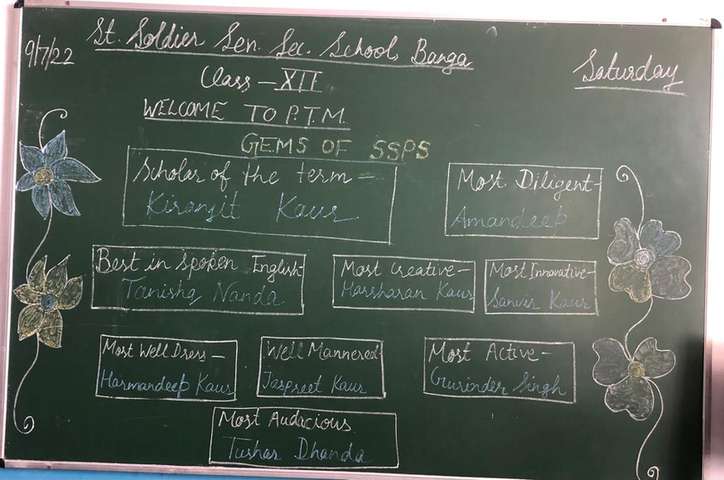 9/7/22
St. Soldier Sen. Sec. School, Banga
Saturday
Class - XII
WELCOME TO P.T.M.
GEMS OF SSPS
Scholar of the term =
Kiranjit Kaur
Most Diligent-
Amandeep
Best in Spoken English-
Tanisha Nanda
Most Creative-
Harsharan Kaur
Most Innovative-
Sanver Kaur
Most Well Dress -
Harmandeep Kaur
Well Mannered-
Jaspreet Kaur
Most Active -
Gurinder Singh
Most Audacious
Tushar Dhanda